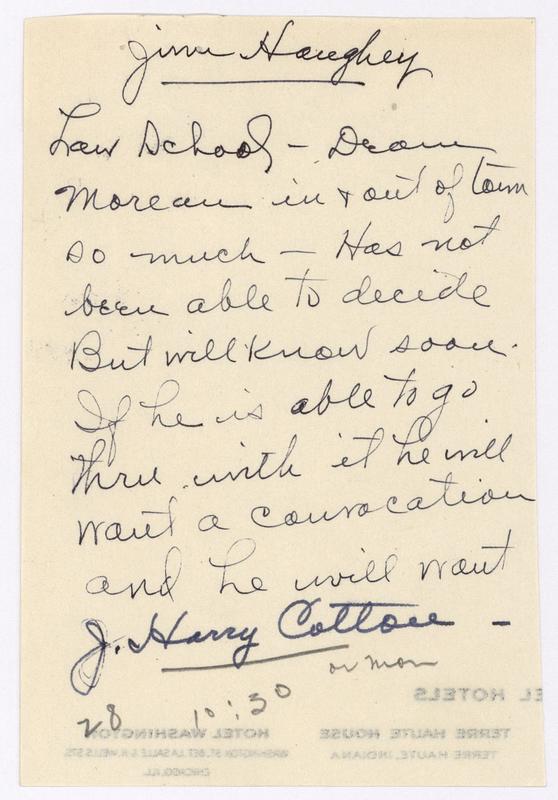 Jim Haughey
Law School - Dean
Moreau in & out of town
so much - Has not
been able to decide
But will know soon.
If he is able to go
thru with it he will
want a convocation
and he will want
J. Harry Cotton -
or mon
28 10:30
EL HOTELS
HOTEL WASHINGTON TERRE HAUTE HOUSE
WASHINGTON ST. BET. LA SALLE & WELLS STS. TERRE HAUTE, INDIANA
CHICAGO, ILL.